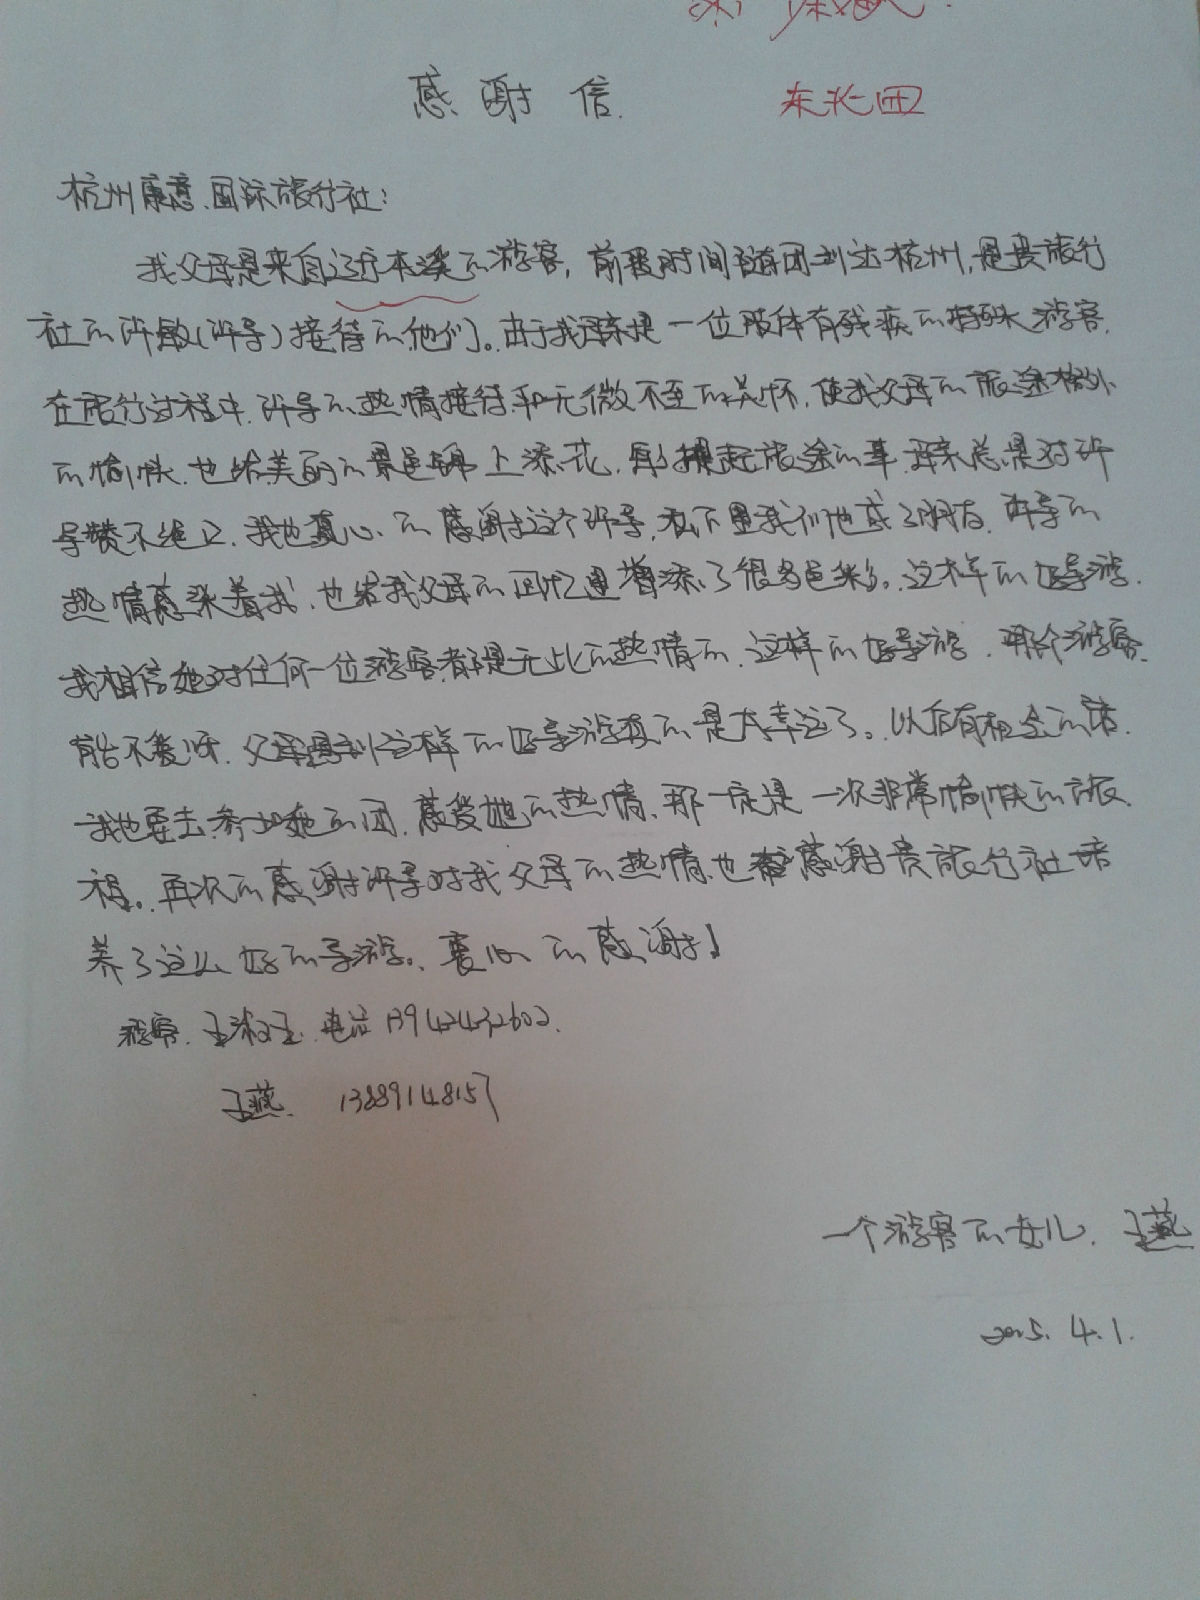 感谢信.
东北四
杭州康意国际旅行社:
我父母是来自辽宁本溪的游客,前段时间随团到达杭州,是贵旅行
社的许敏(许导)接待的他们。由于我母亲是一位肢体有残疾的特殊游客.
在旅行过程中.许导的热情接待和无微不至的关怀,使我父母的旅途格外
的愉快.也给美丽的景色锦上添花.每提起旅途的事.母亲总是对许
导赞不绝口.我也真心的感谢这个许导,私下里我们也成了朋友.许导的
热情感染着我.也给我父母的回忆里增添了很多色彩。这样的好导游.
我相信她对任何一位游客都是无比的热情的.这样的好导游.哪个游客
能不爱呀.父母遇到这样的好导游真的是太幸运了。以后有机会的话.
我也要去参加她的团.感受她的热情.那一定是一次非常愉快的旅
程。再次的感谢许导对我父母的热情.也感谢贵旅行社培
养了这么好的导游。衷心的感谢!
游客.王淑玉.电话13942432602.
王燕. 13889148157
一个游客的女儿.王燕
2015.4.1.